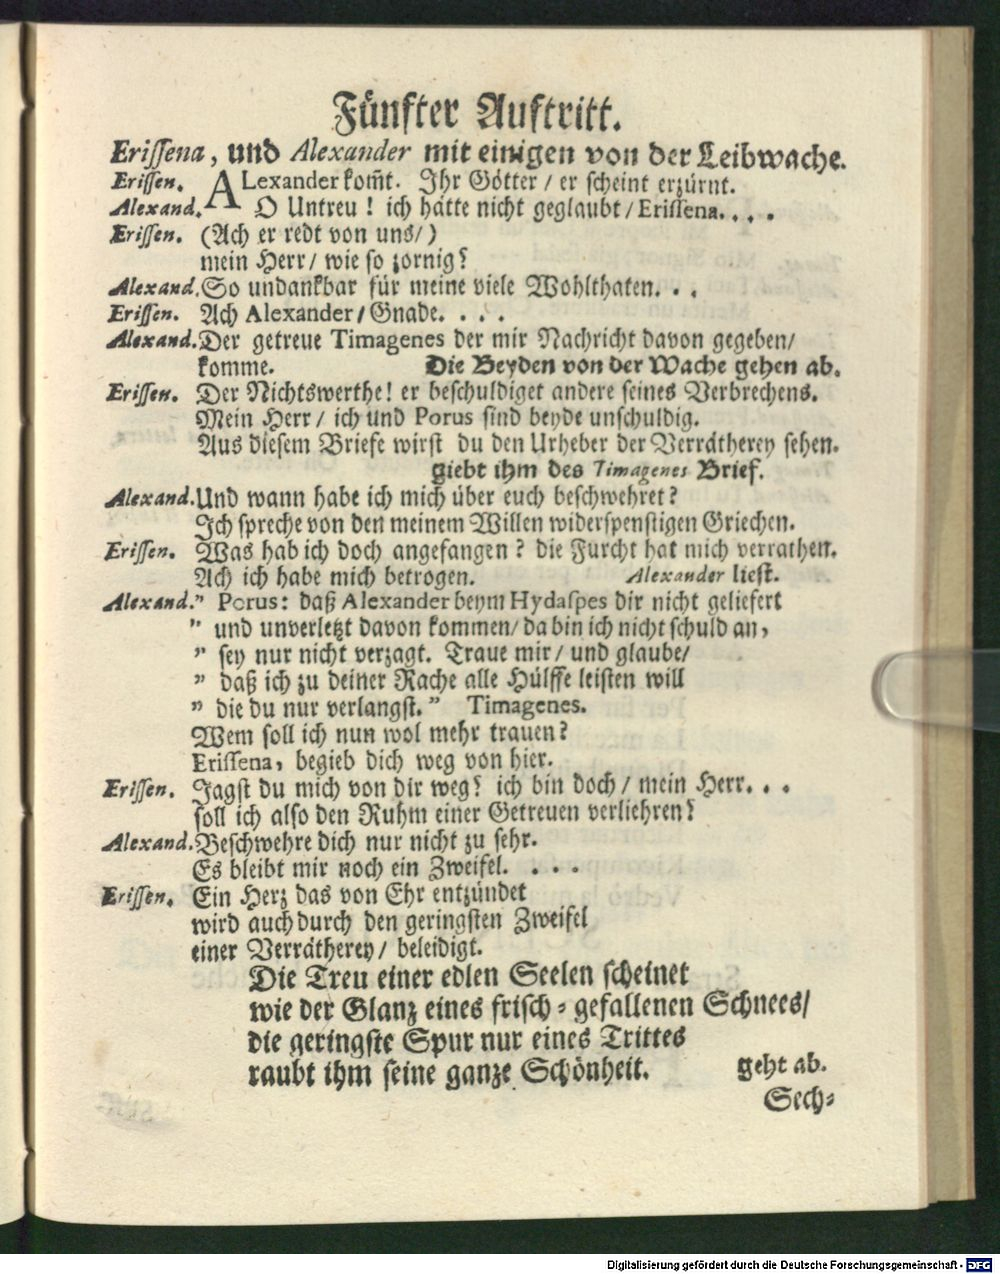 Fünfter Auftritt.
Erissena, und Alexander mit einigen von der Leibwache.
Erissen. ALexander kom̃t. Ihr Götter / er scheint erzürnt.
Alexand. O Untreu ! ich hätte nicht geglaubt / Erissena. . . .
Erissen. (Ach er redt von uns/ )
mein Herr / wie so zornig?
Alexand. So undankbar für meine viele Wohlthaten. . .
Erissen. Ach Alexander / Gnade. . . .
Alexand. Der getreue Timagenes der mir Nachricht davon gegeben /
komme. Die Beyden von der Wache gehen ab.
Erissen. Der Nichtswerthe! er beschuldiget andere seines Verbrechens.
Mein Herr / ich und Porus sind beyde unschuldig.
Aus diesem Briefe wirst du den Urheber der Verrätherey sehen.
giebt ihm des Timagenes Brief.
Alexand. Und wann habe ich mich über euch beschwehret ?
Ich spreche von den meinem Willen widerspenstigen Griechen.
Erissen. Was hab ich doch angefangen ? die Furcht hat mich verrathen.
Ach ich habe mich betrogen. Alexander liest.
Alexand. " Porus: daß Alexander beym Hydaspes dir nicht geliefert
" und unverletzt davon kommen / da bin ich nicht schuld an,
" sey nur nicht verzagt. Traue mir / und glaube /
" daß ich zu deiner Rache alle Hülffe leisten will
" die du nur verlangst. " Timagenes.
Wem soll ich nun wol mehr trauen ?
Erissena, begieb dich weg von hier.
Erissen. Jagst du mich von dir weg? ich bin doch / mein Herr. . .
soll ich also den Ruhm einer Getreuen verliehren?
Alexand. Beschwehre dich nur nicht zu sehr.
Es bleibt mir noch ein Zweifel. . . .
Erissen. Ein Herz das von Ehr entzündet
wird auch durch den geringsten Zweifel
einer Verrätherey / beleidigt.
Die Treu einer edlen Seelen scheinet
wie der Glanz eines frisch = gefallenen Schnees /
die geringste Spur nur eines Trittes
raubt ihm seine ganze Schönheit. geht ab.
Sech=
Digitalisierung gefördert durch die Deutsche Forschungsgemeinschaft - DFG